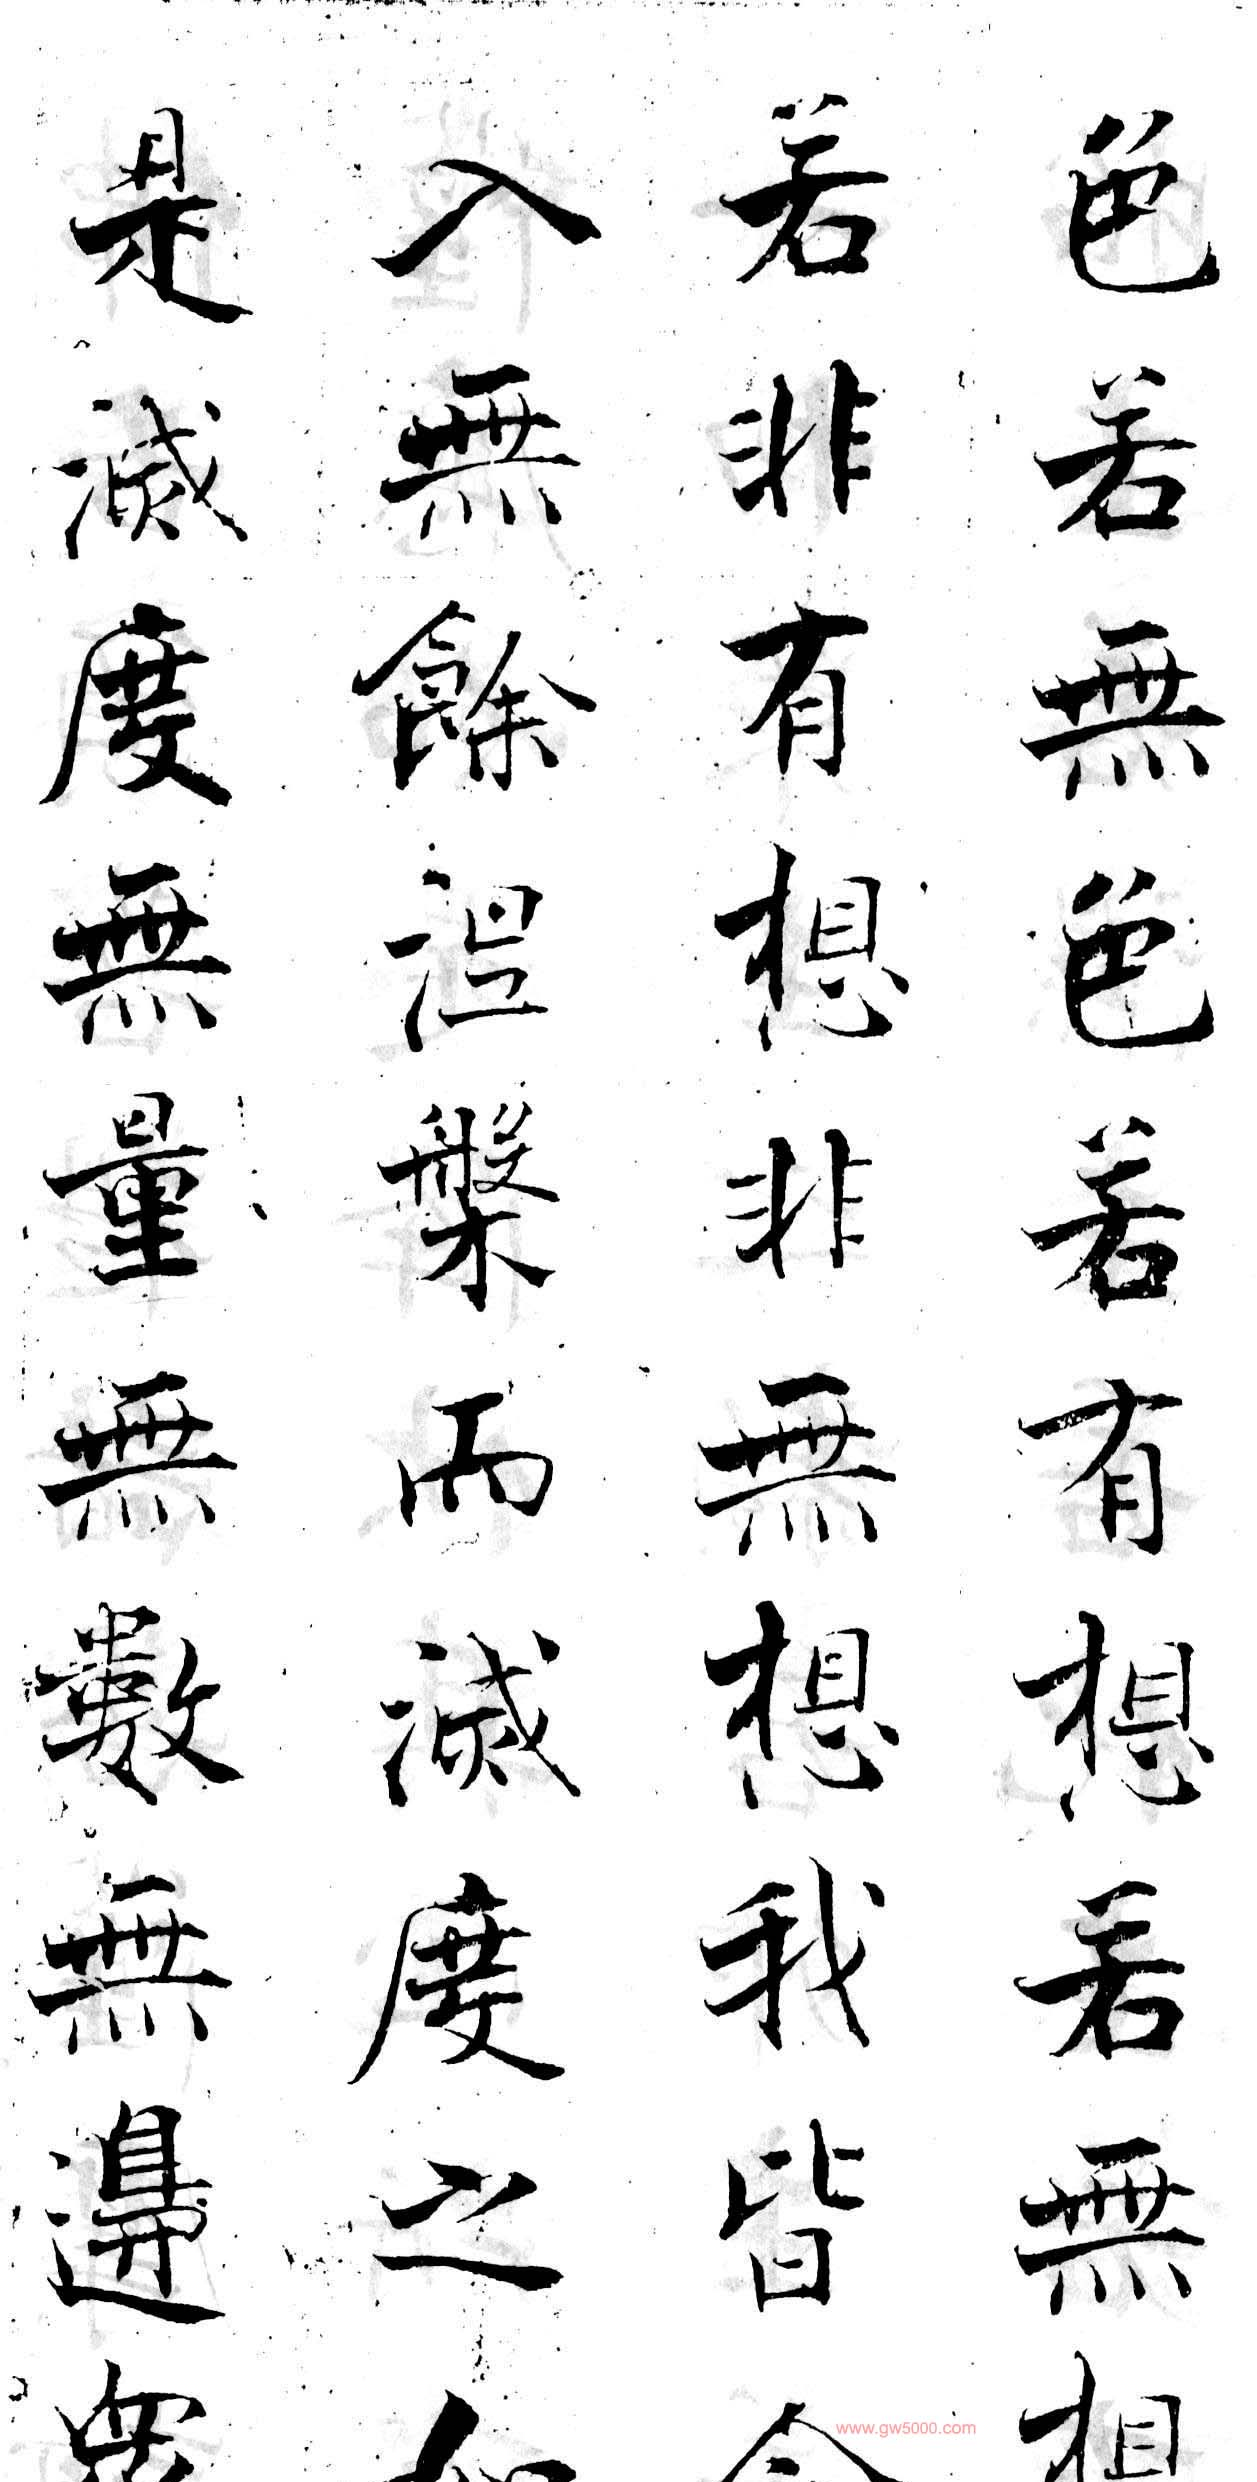 色若無色若有想若無想
若非有想非無想我皆令
入無餘涅槃而滅度之如
是滅度無量無數無邊衆
www.gw5000.com